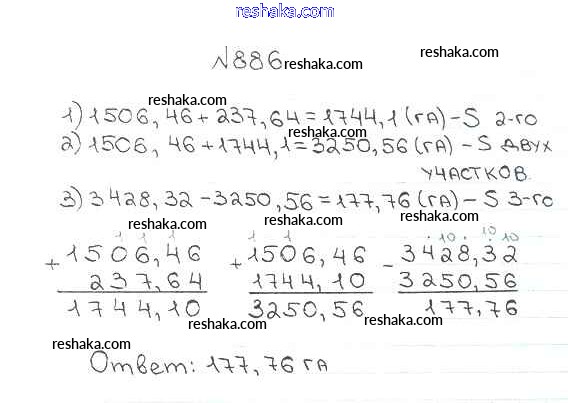 reshaka.com
№886 reshaka.com
reshaka.com
1) 1506,46 + 237,64 = 1744,1 (га) – S 2-го
reshaka.com
2) 1506,46 + 1744,1 = 3250,56 (га) – S двух
участков
reshaka.com
3) 3428,32 – 3250,56 = 177,76 (га) – S 3-го
reshaka.com reshaka.com
1 1 1 1 1 10 10 10
+ 1506,46 + 1506,46 – 3428,32
237,64 1744,10 3250,56
1744,10 3250,56 177,76
reshaka.com reshaka.com
reshaka.com
Ответ: 177,76 га
reshaka.com